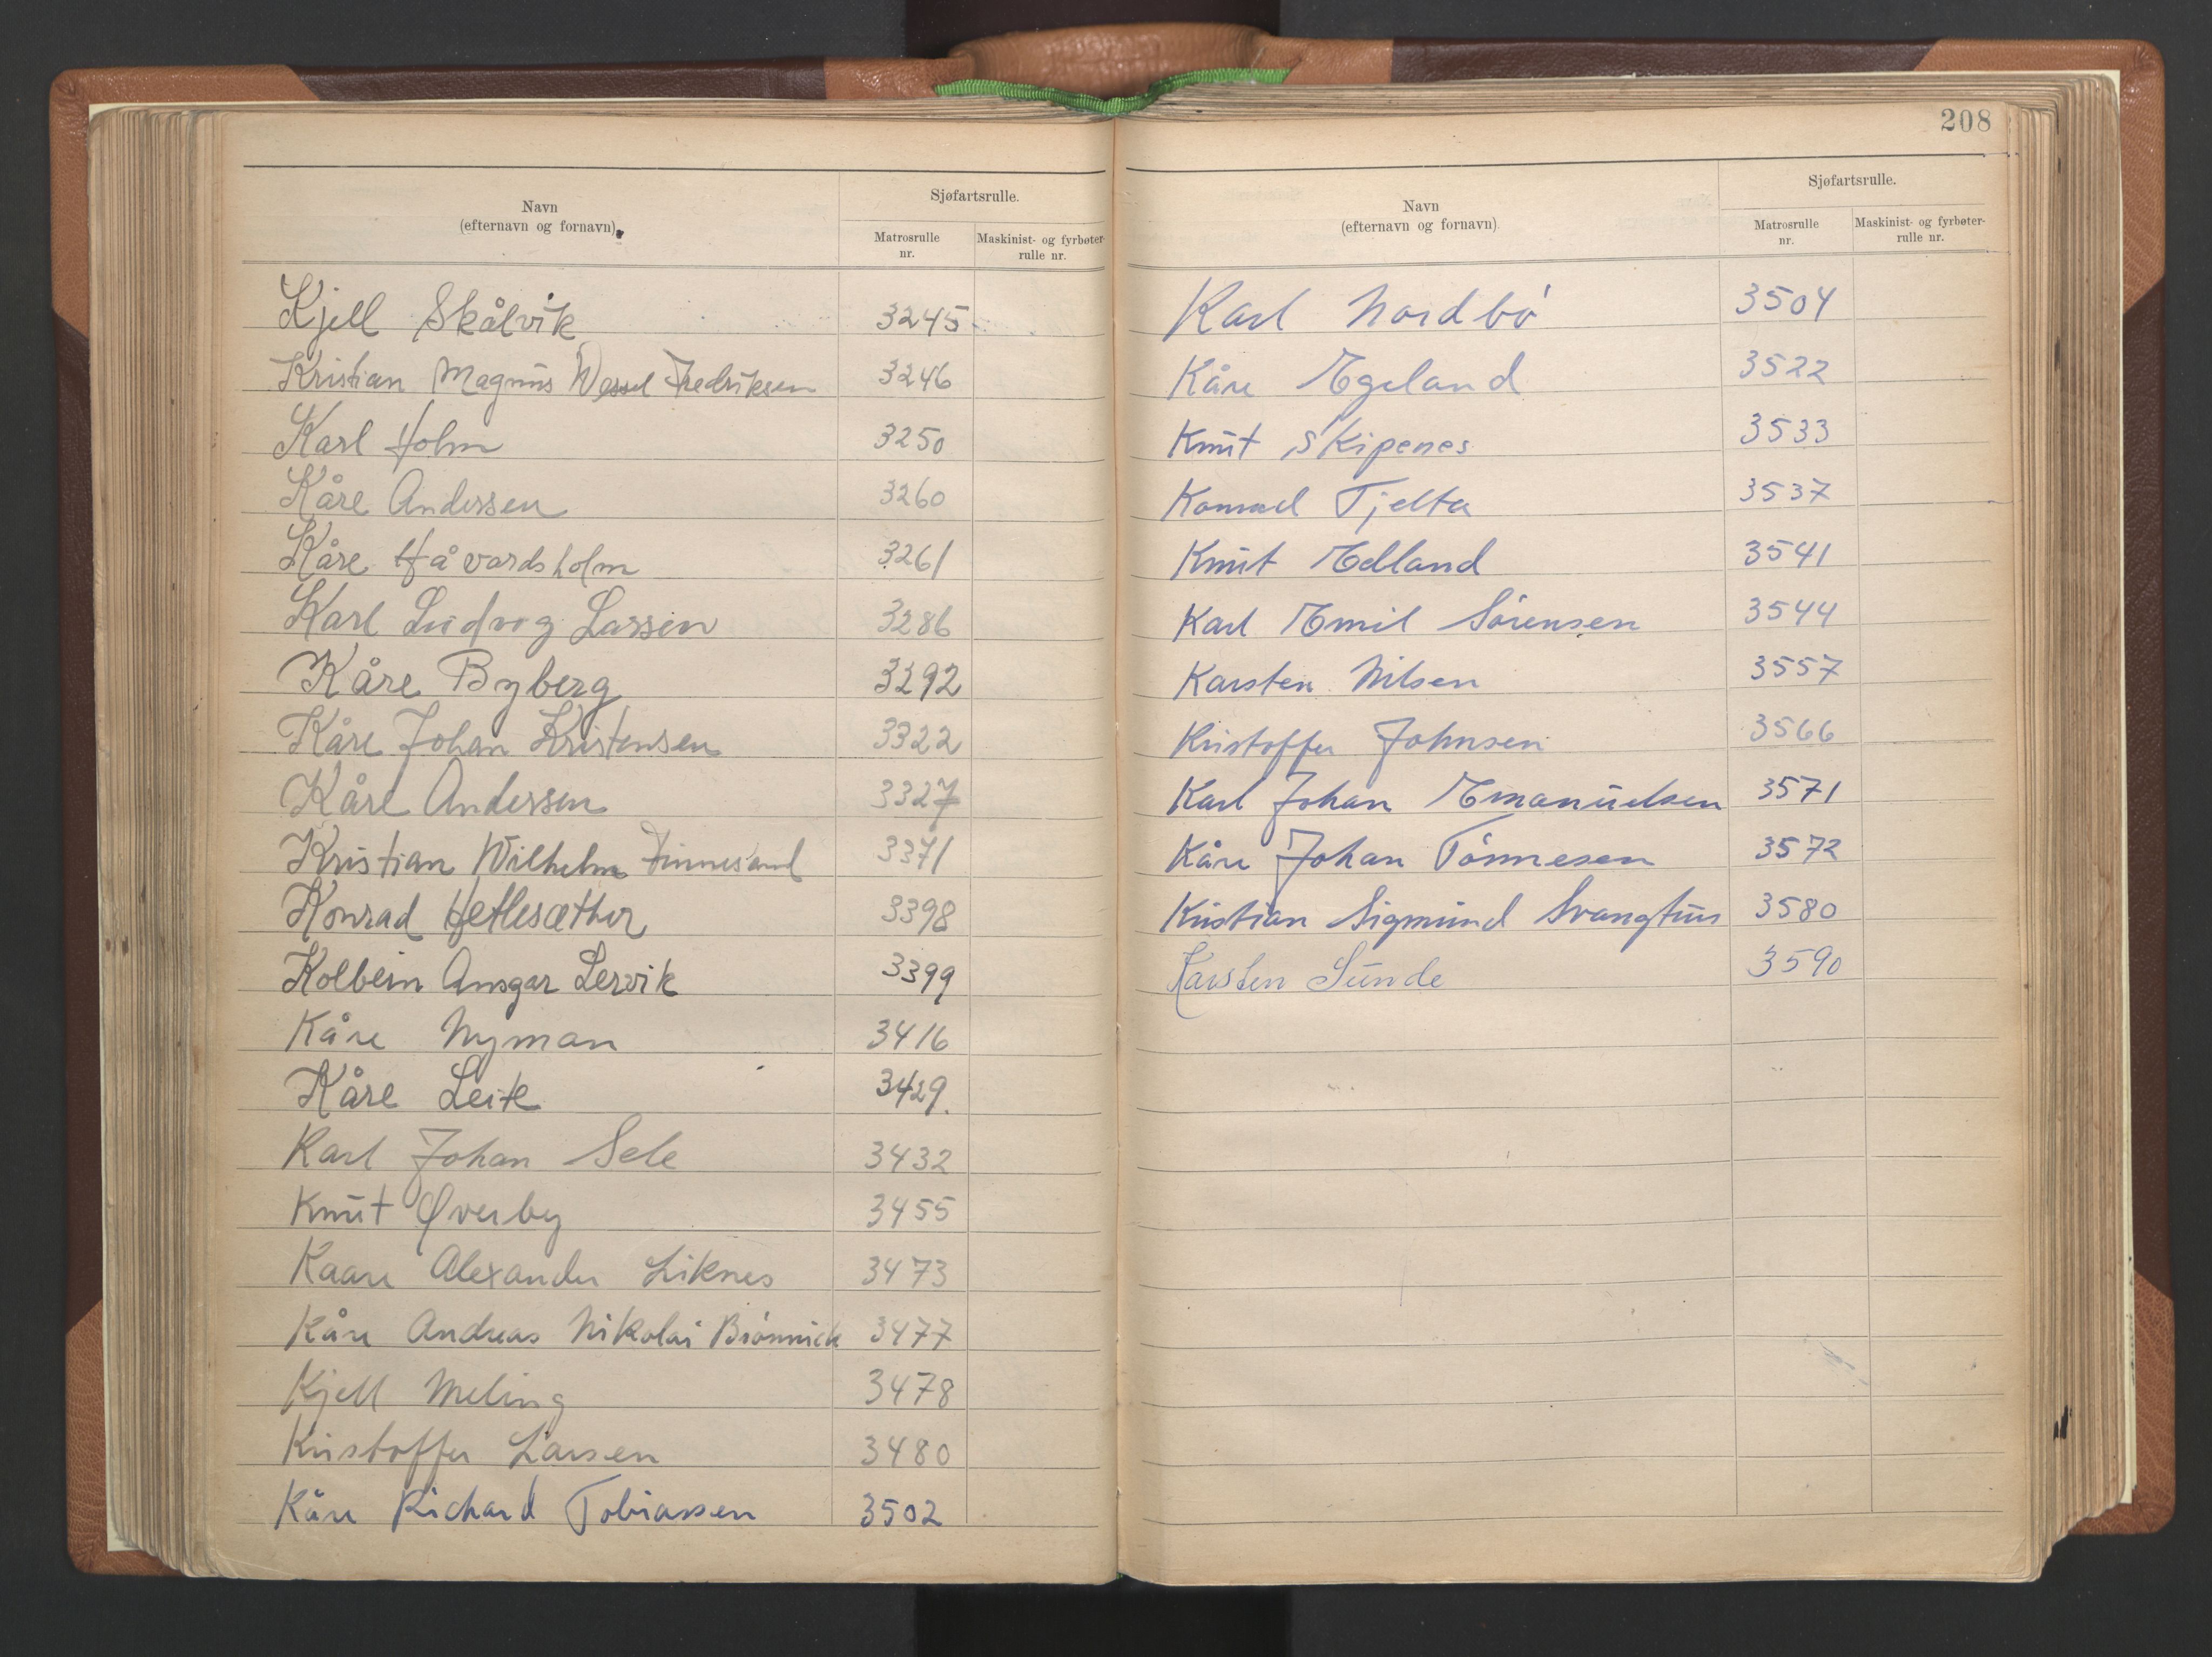 Navn
(efternavn og fornavn).
Sjøfartsrulle.
Matrosrulle nr.
Maskinist- og fyrbøter-rulle nr.
Kjell Skålvik 3245
Kristian Magnus Wessel Fredriksen 3246
Karl Holm 3250
Kåre Andersen 3260
Kåre Håvardsholm 3261
Karl Ludvig Larsen 3286
Kåre Byberg 3292
Kåre Johan Kristensen 3322
Kåre Andersen 3327
Kristian Wilhelm Finnesand 3371
Konrad Hetlesæther 3398
Kolbein Ansgar Lervik 3399
Kåre Nyman 3416
Kåre Leite 3429.
Karl Johan Sele 3432
Knut Øverby 3455
Kaare Alexander Liknes 3473
Kåre Andreas Nikolai 3477
Kjell Meling 3478
Kristoffer Larsen 3480
Kåre Richard Tobiassen 3502
208
Navn
(efternavn og fornavn)
Sjøfartsrulle.
Matrosrulle nr.
Maskinist- og fyrbøter-rulle nr.
Karl Nordbö 3504
Kåre Egeland 3522
Knut Skipenes 3533
Konrad Tjelta 3537
Knut Edland 3541
Karl Emil Sörensen 3544
Karsten Nilsen 3557
Kristoffer Johnsen 3566
Karl Johan Emanuelsen 3571
Kåre Johan Tönnesen 3572
Kristian Sigmund Svangtun 3580
Karsten Sunde 3590